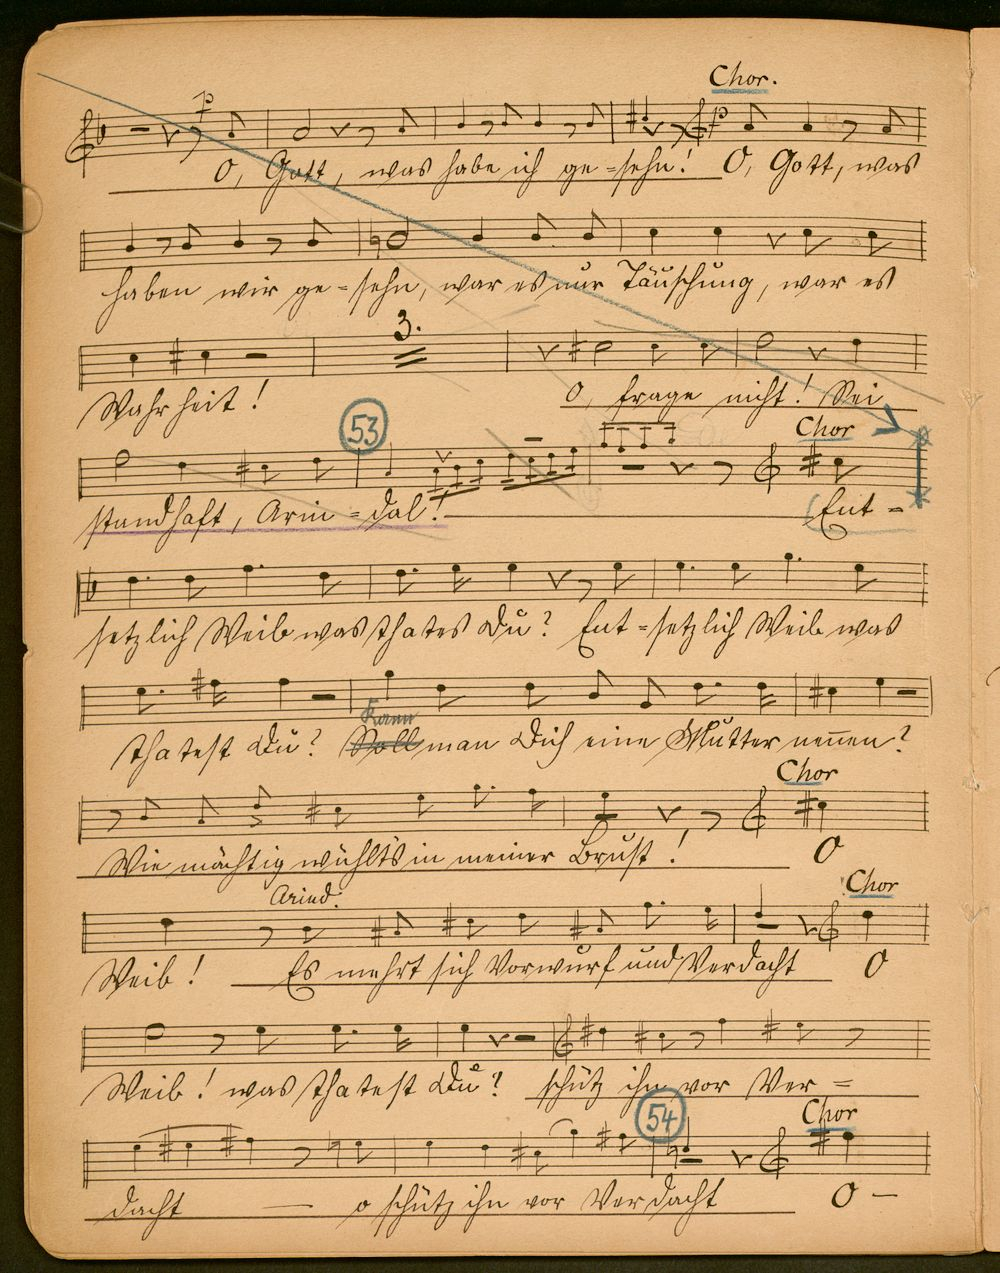 Chor.
p p
O, Gott, was habe ich ge-sehn! O, Gott, was
haben wir ge-sehn, war es nur Täuschung, war es
3.
Wahrheit! O, frage nicht! Sei
53 Chor
standhaft, Arin-dal! Ent-
setzlich Weib was thatest Du? Ent-setzlich Weib was
Kann
thatest Du? Soll man Dich eine Mutter nennen?
Chor
Wie mächtig wühlt's in meiner Brust! O
Arind. Chor
Weib! Es mehrt sich Vorwurf und Verdacht O
Weib! was thatest Du? schütz ihn vor Ver-
54 Chor
dacht — o schütz ihn vor Verdacht O —